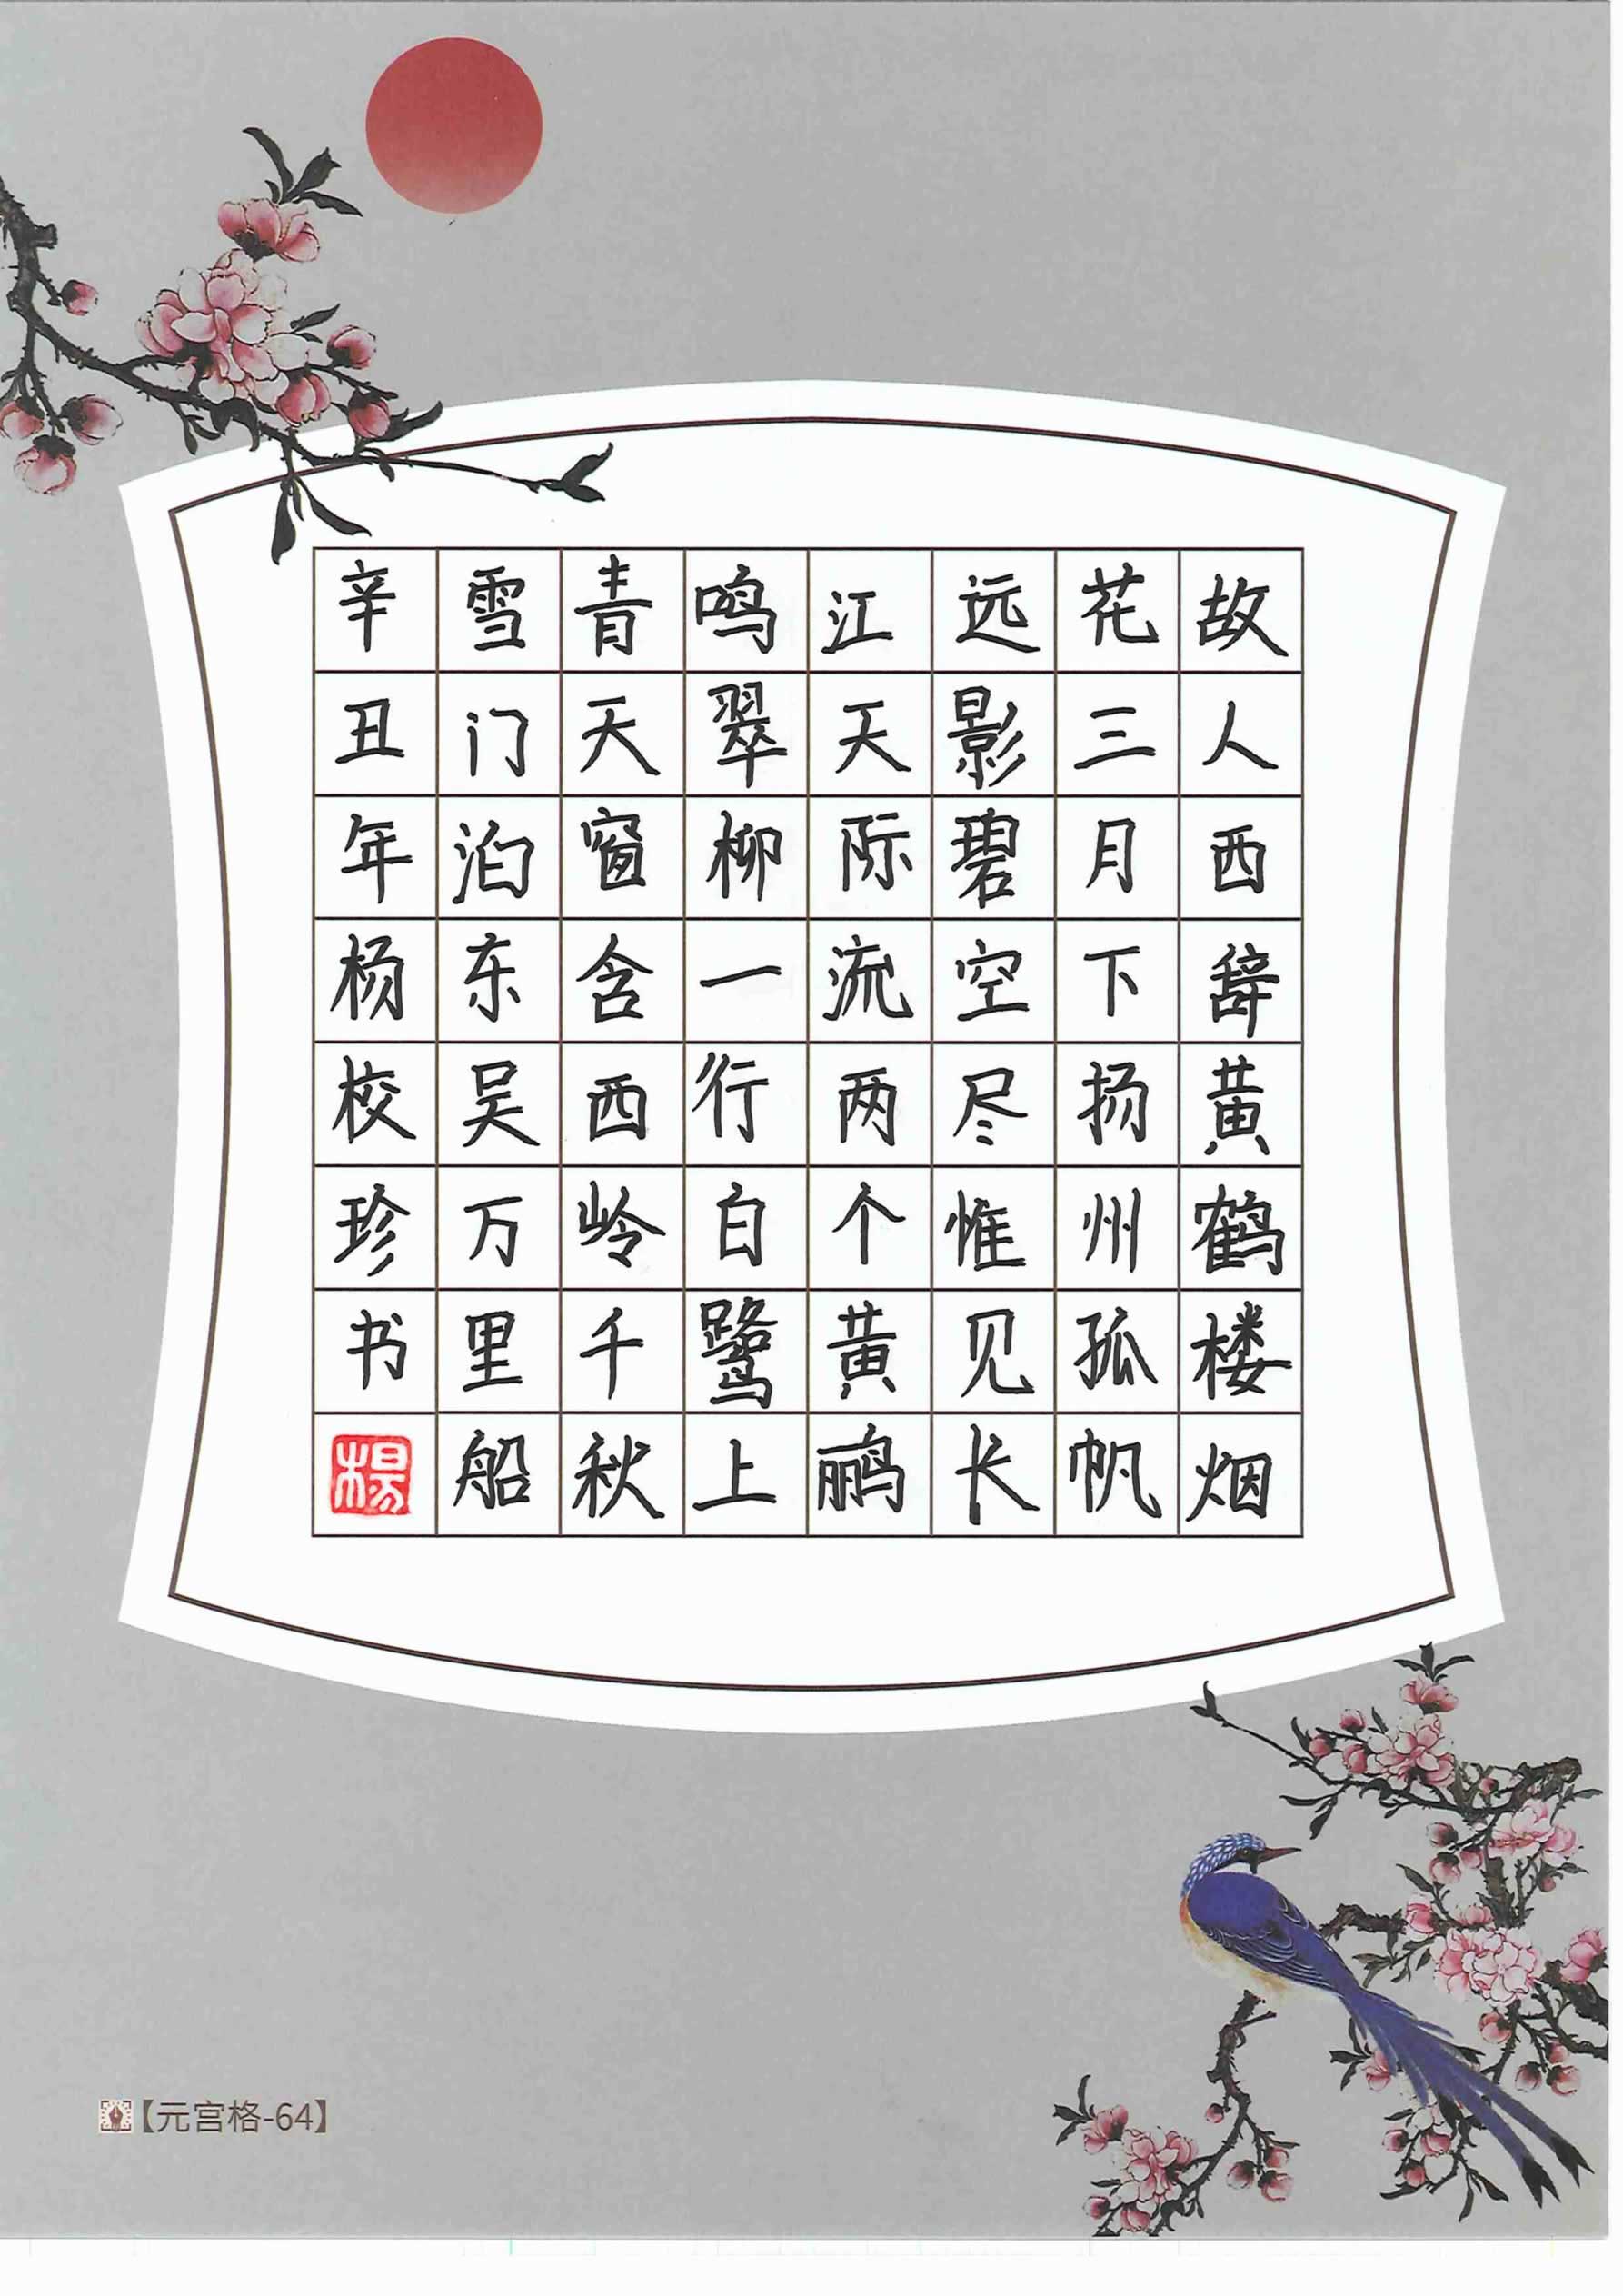 故人西辞黄鹤楼烟
花三月下扬州孤帆
远影碧空尽惟见长
江天际流两个黄鹂
鸣翠柳一行白鹭上
青天窗含西岭千秋
雪门泊东吴万里船
辛丑年杨校珍书
楊
【元宫格-64】